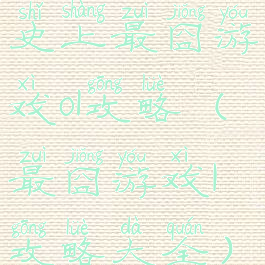 shǐ shàng zuì jiǒng yóu
史上最囧游
xì gōng lüè
戏01攻略（
zuì jiǒng yóu xì
最囧游戏1
gōng lüè dà quán
攻略大全）